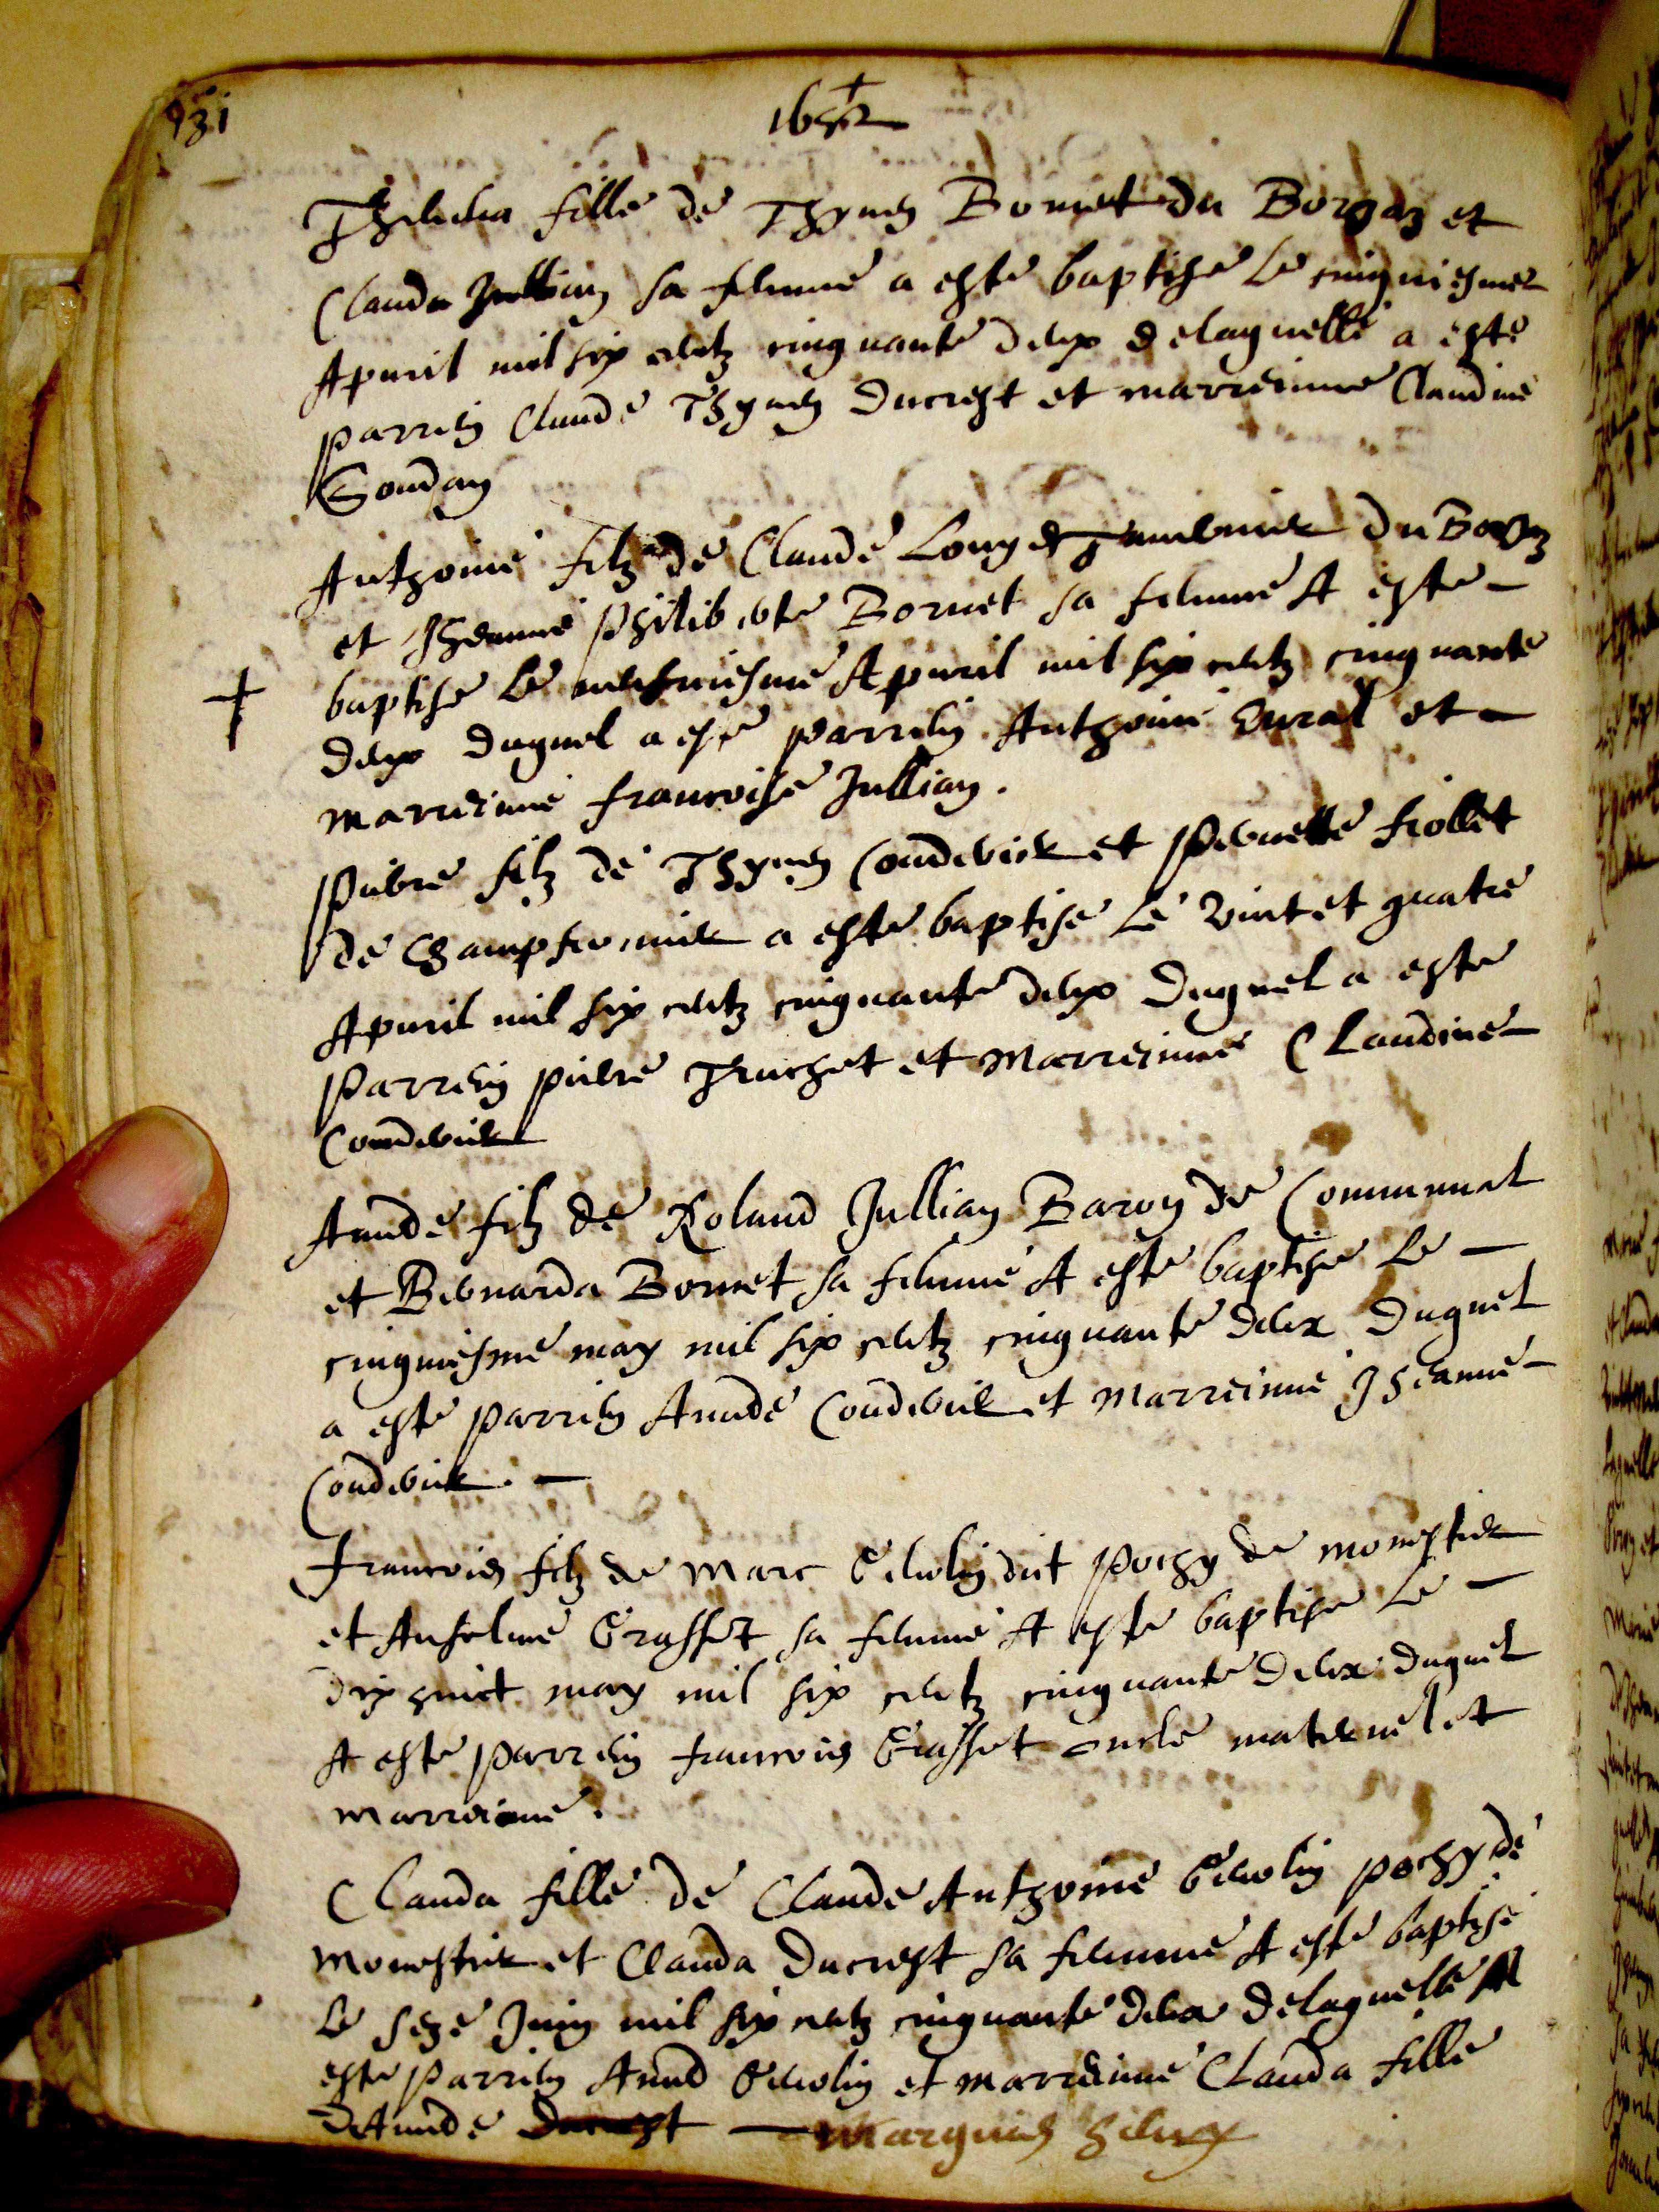 931
1652
fille de Thyven Bornet du Borgaz et
Clauda Jullian sa femme a este baptise le cinquiesme
Apvril mil six centz cinquante deux de laquelle a este
parrein Claude Thyven Ducrest et marreinne Claudine
Gondan
Anthoine filz de Claude Longet du Borgaz
et Jheanne Philiberte Bornet sa femme A este
baptise le neufviesme Apvril mil six centz cinquante
deux duquel a este parrein Anthoine Duval et
marreinne Francoise Jullian.
Pierre filz de Thyven Condevick et Pernette Fiollet
de Champfromier a este baptise le vint et quatre
Apvril mil six centz cinquante deux duquel a este
Parrein pierre Truchet et Marreinne Claudine
Condevick
Aimde filz de Roland Jullian Baron de Communal
et Bernarda Bornet sa femme A este baptise le
cinquiesme may mil six centz cinquante deux duquel
a este parrein Aimde Condevick et Marreinne Jheanne
Condevick.
Francois filz de Marc Genolin dit Pochy de monestier
et Anselme Grasset sa femme A este baptise le
dix huict may mil six centz cinquante deux duquel
A este parrein Francois Grasset oncle maternel et
marreinne.
Clauda fille de Claude Anthoine Genolin pochy de
monestier et Clauda Ducrest sa femme A este baptise
le seze Juin mil six centz cinquante deux de laquelle A
este parrein Aimd Genolin et marreinne Clauda fille
d'Aimde Ducrest